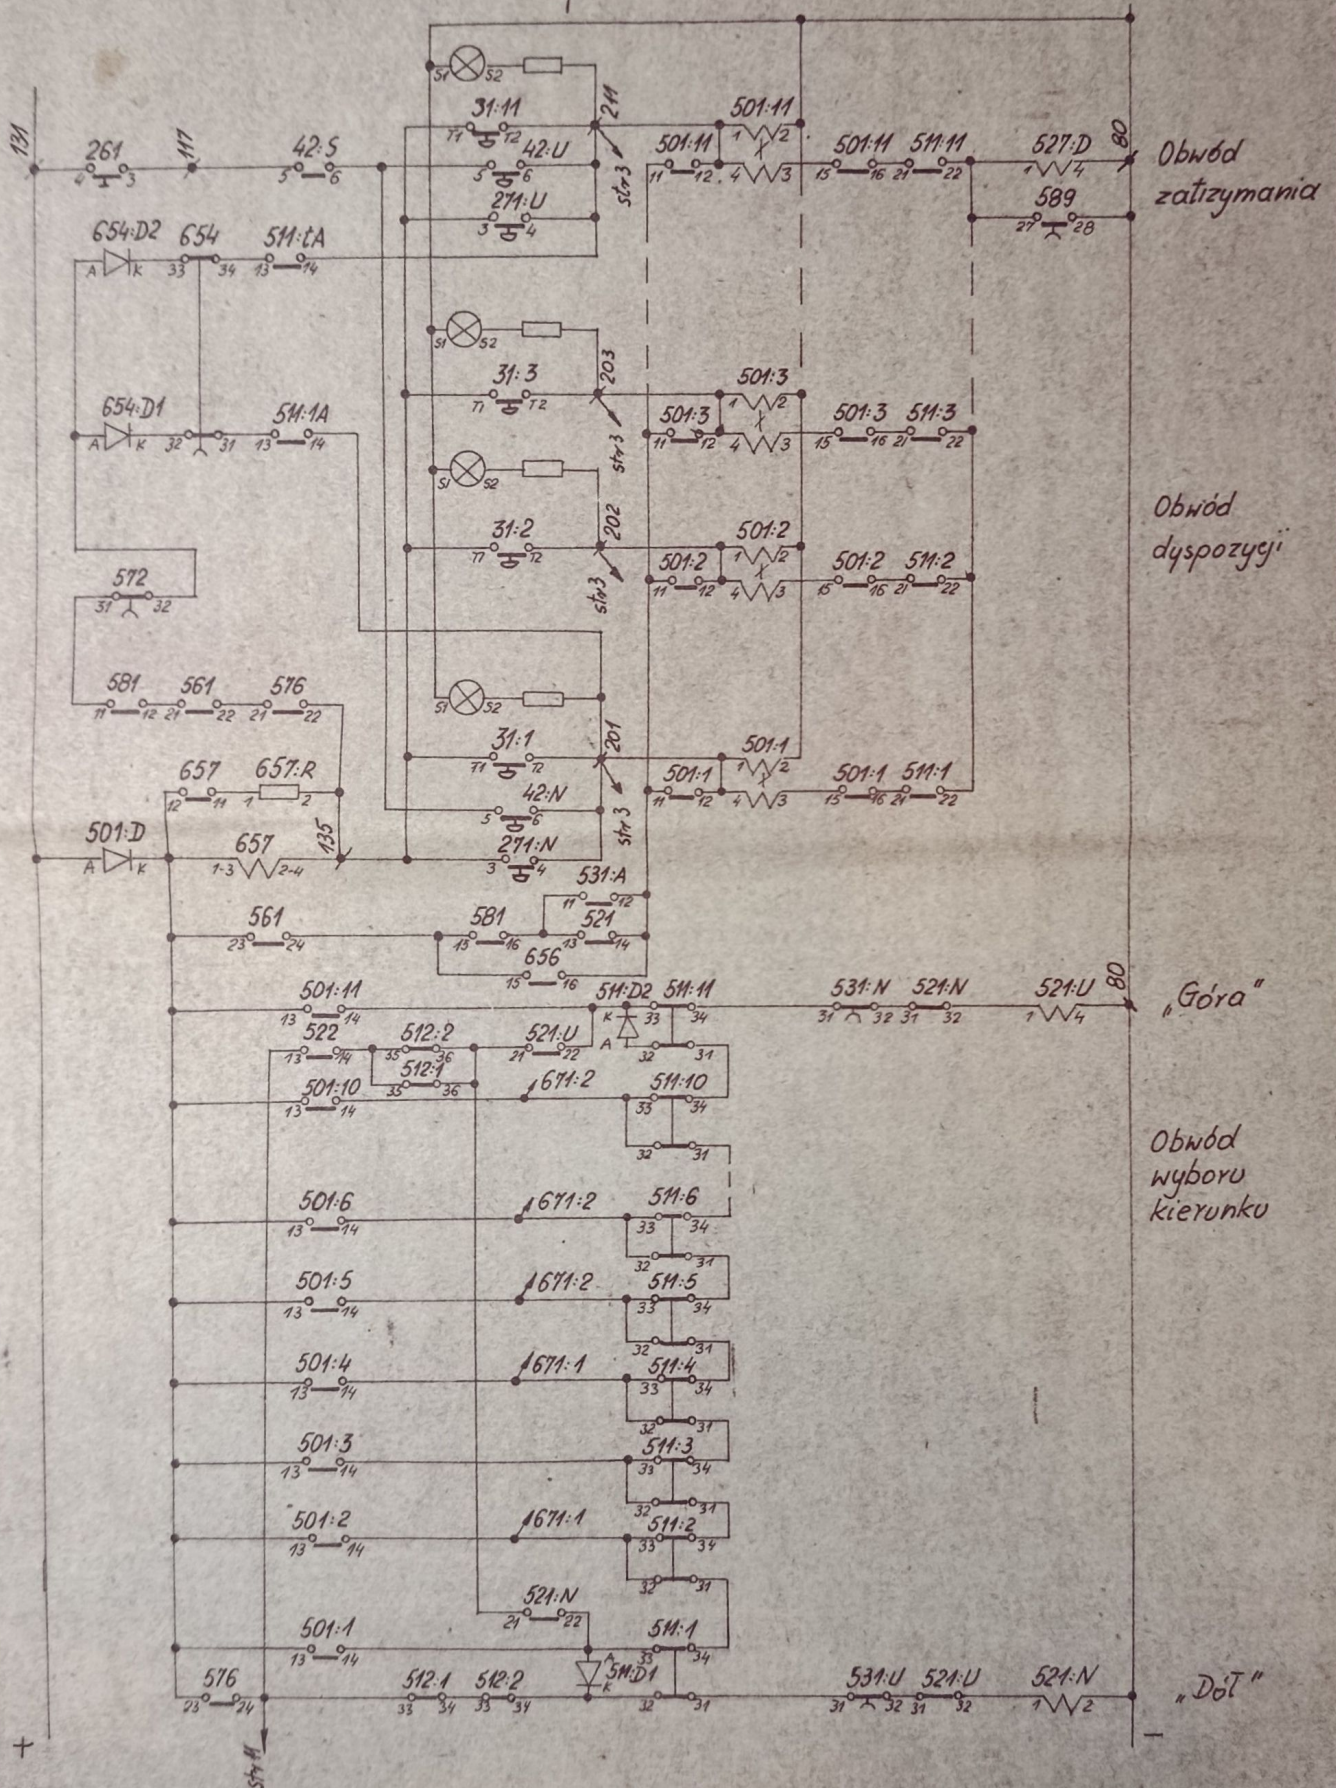 S1 S2
131
261
4 3
117
42:S
5 6
31:11
T1 T2
211
42:U
5 6
271:U
3 4
str3
501:11
1 2
501:11
11 12
4 3
501:11
15 16
511:11
21 22
527:D
1 4
80
589
27 28
Obwód
zatrzymania
654:D2
A K
654
33 34
511:tA
13 14
S1 S2
203
31:3
T1 T2
str3
501:3
1 2
501:3
11 12
4 3
501:3
15 16
511:3
21 22
654:D1
A K
32 31
511:1A
13 14
S1 S2
202
31:2
T1 T2
str3
501:2
1 2
501:2
11 12
4 3
501:2
15 16
511:2
21 22
Obwód
dyspozycji
572
31 32
581
11 12
561
21 22
576
21 22
S1 S2
201
31:1
T1 T2
str3
501:1
1 2
501:1
11 12
4 3
501:1
15 16
511:1
21 22
657
12 11
657:R
1 2
42:N
5 6
501:D
A K
657
1-3 2-4
135
271:N
3 4
531:A
11 12
561
23 24
581
15 16
521
13 14
656
15 16
501:11
13 14
511:D2
K
A
511:11
33 34
32 31
531:N
31 32
521:N
31 32
521:U
1 4
80
„Góra”
522
13 14
512:2
35 36
521:U
21 22
512:1
35 36
501:10
13 14
671:2
511:10
33 34
32 31
Obwód
wyboru
kierunku
501:6
13 14
671:2
511:6
33 34
32 31
501:5
13 14
671:2
511:5
33 34
32 31
501:4
13 14
671:1
511:4
33 34
32 31
501:3
13 14
511:3
33 34
32 31
501:2
13 14
671:1
511:2
33 34
32 31
521:N
21 22
501:1
13 14
511:1
33 34
576
23 24
512:1
33 34
512:2
33 34
A
K
511:D1
32 31
531:U
31 32
521:U
31 32
521:N
1 2
„Dół”
+
str 11
−